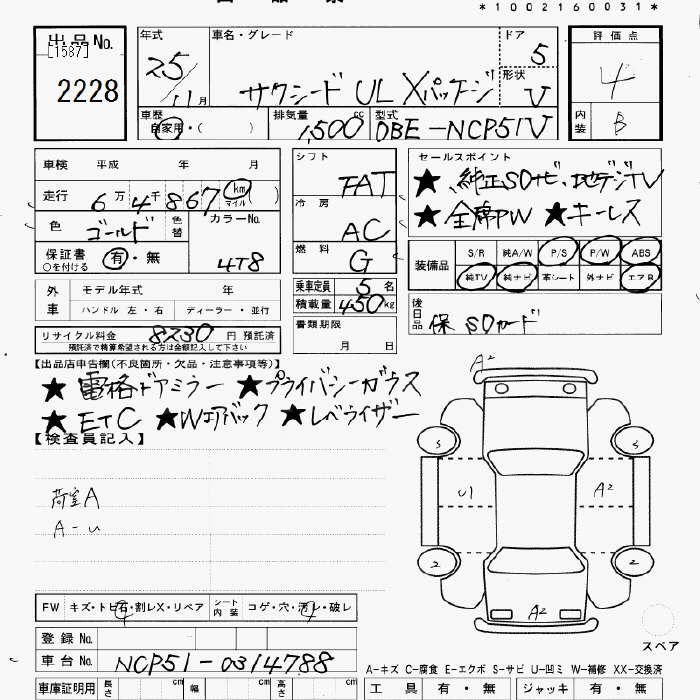 *1002160031*
出品No. [1587] 2228
年式 25/11月
車名・グレード サクシード UL Xパッケージ
ドア 5
形状 V
評価点 4
内装 B
車歴 自家用・( )
排気量 1,500cc
型式 DBE-NCP51V
車検 平成 年 月
走行 6万4千867km マイル( )
色 ゴールド 色替
カラーNo. 4T8
保証書 ○を付ける 有・無
シフト FAT
冷房 AC
燃料 G
乗車定員 5名
積載量 450kg
書類期限 月 日
セールスポイント
★純正SDナビ、地デジTV
★全席PW ★キーレス
装備品 S/R 純A/W P/S P/W ABS
純TV 純ナビ 革シート 外ナビ エアB
後日品 保 SDカード
外車 モデル年式 年
ハンドル 左・右 ディーラー・並行
リサイクル料金 8230円 預託済
預託済で精算希望される方は金額記入して下さい
【出品店申告欄(不良箇所・欠品・注意事項等)】
★電格ドアミラー ★プライバシーガラス
★ETC ★Wエアバック ★レベライザー
【検査員記入】
荷室A
A-U
A2
S S
U1 A2
2 2
A2
スペア
FW キズ・トビ石・割レX・リペア シート内装 コゲ・穴・汚レ・破レ
登録No.
車台No. NCP51-0314788
車庫証明用 長さ cm 幅 cm 高さ cm
A-キズ C-腐食 E-エクボ S-サビ U-凹ミ W-補修 XX-交換済
工具 有・無 ジャッキ 有・無